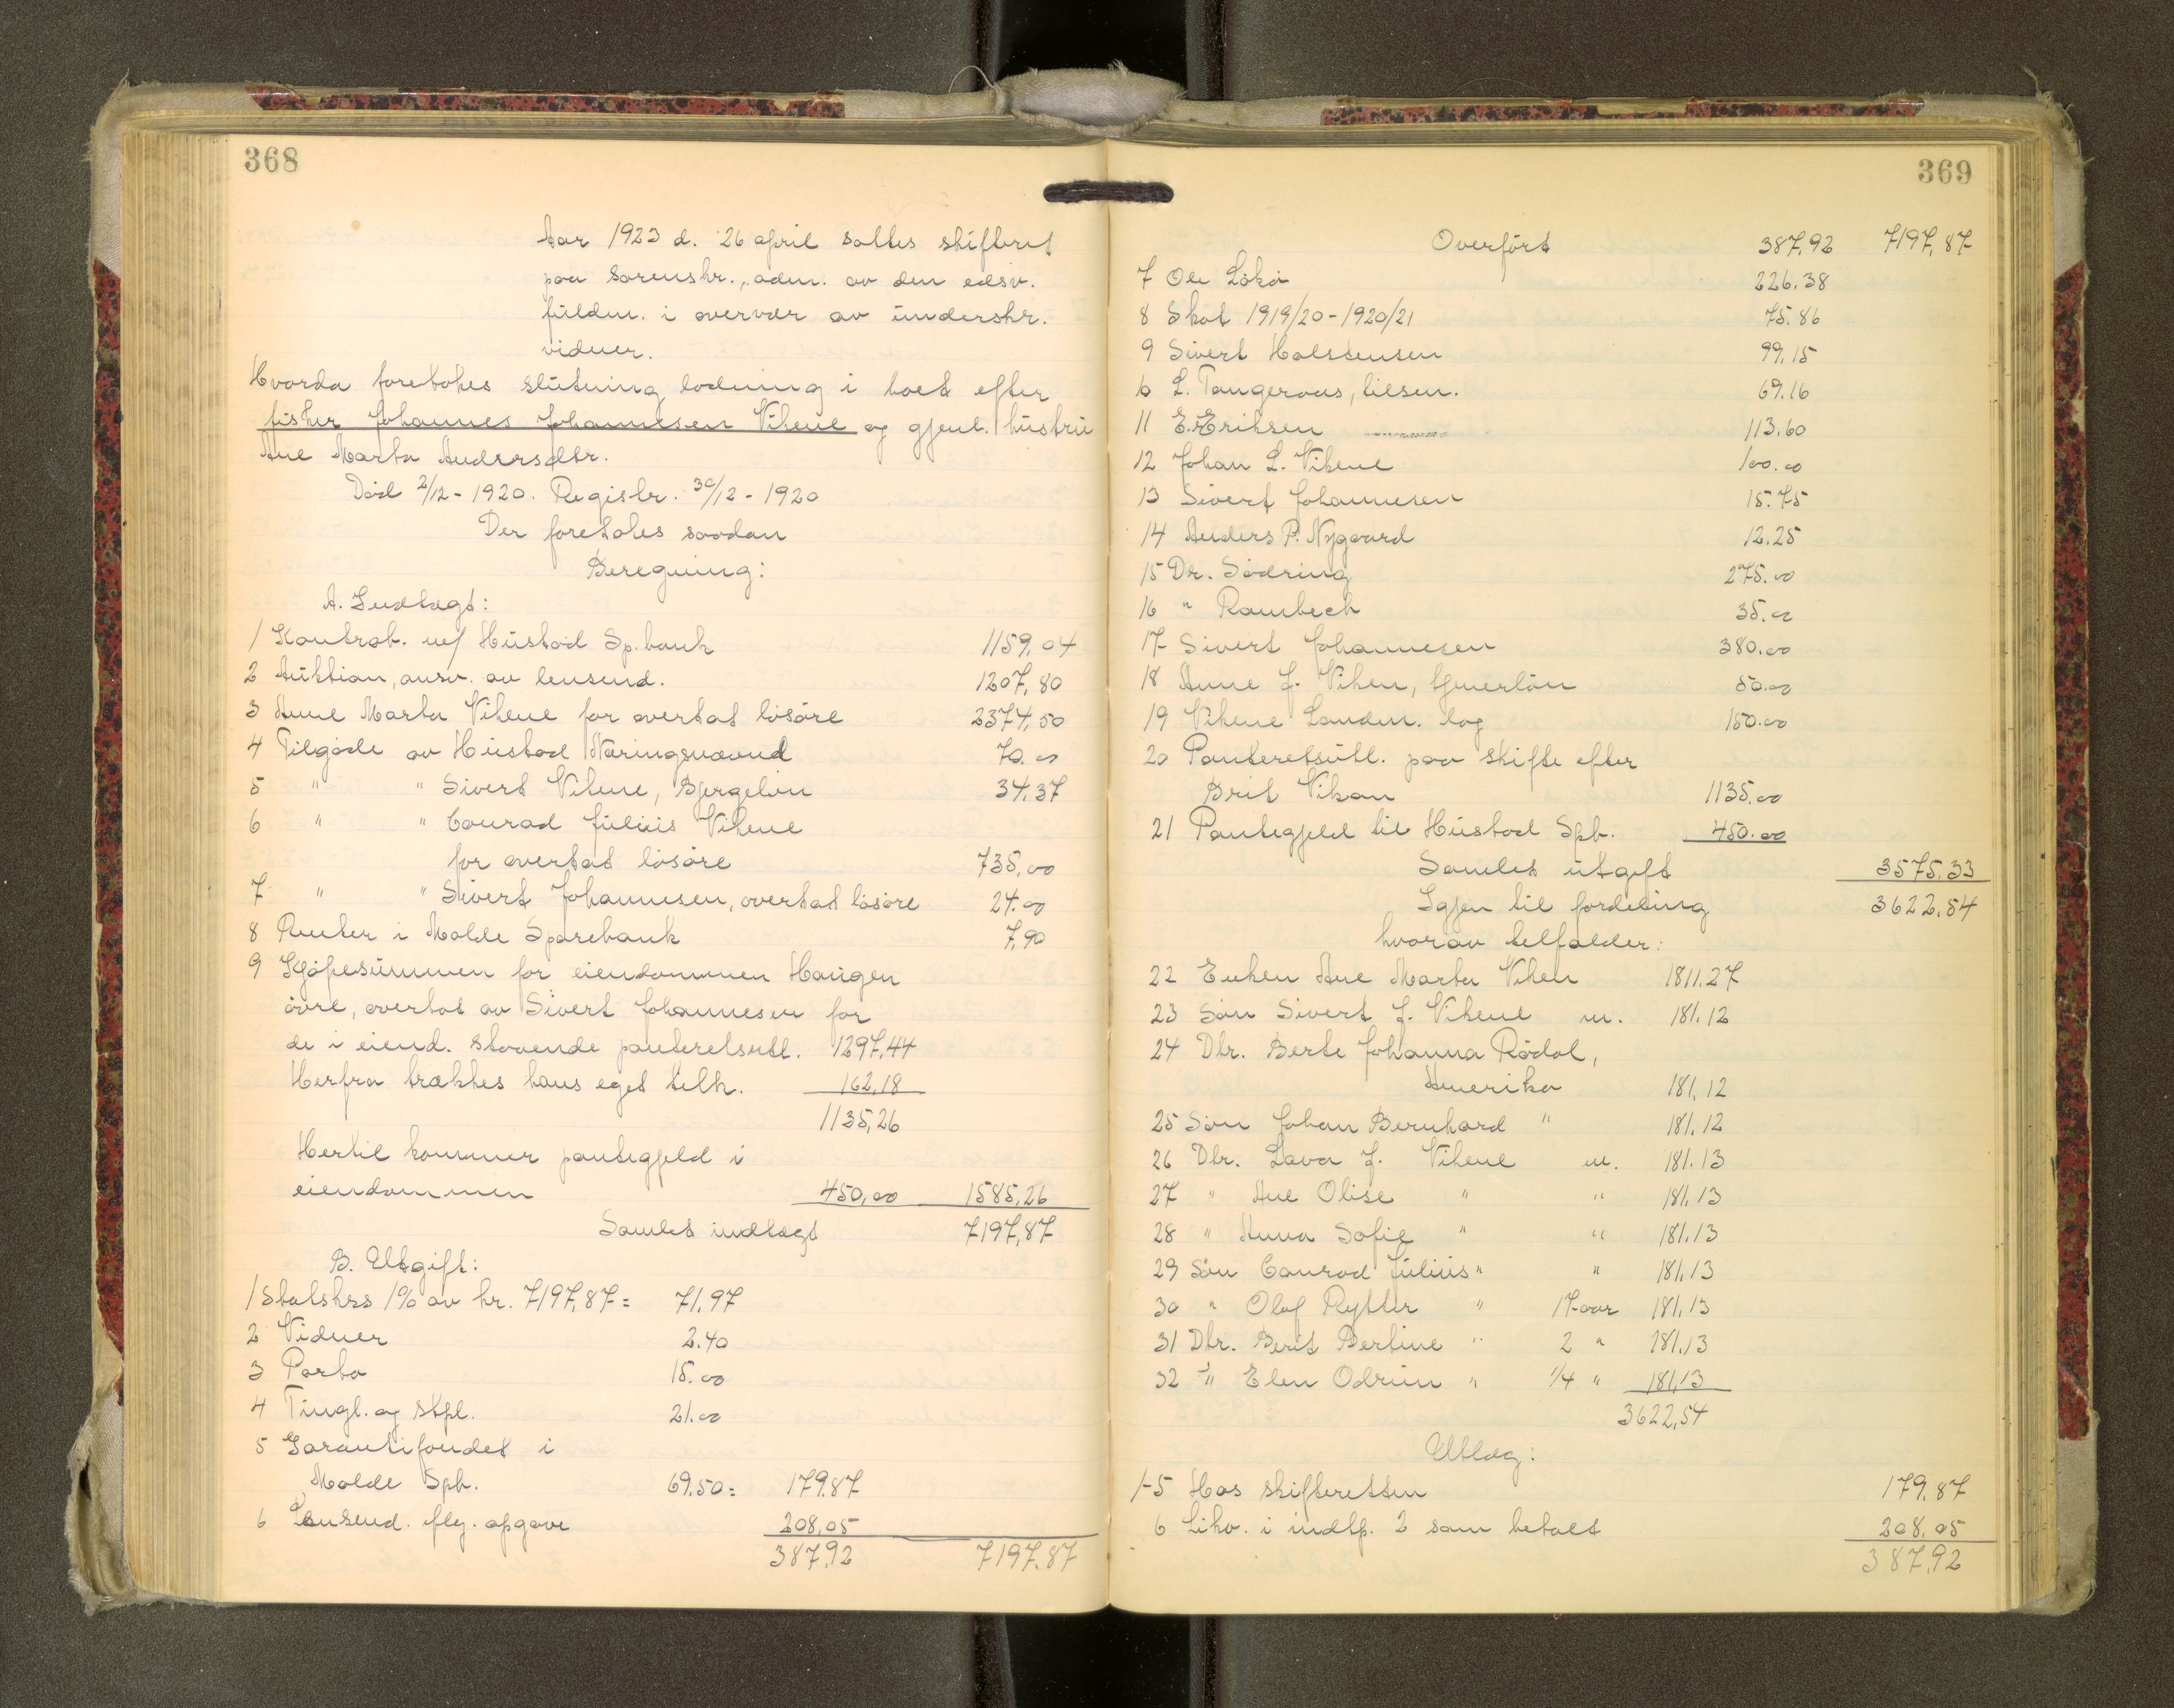 368
Aar 1923 d. 26 april sattes skifteret
paa sorenskr., adm. av den edsv.
fuldm. i overvær av underskr.
vidner.
Hvorda foretokes slutning lodning i boet efter
fisker Johannes Johannesen Vikene og gjenl. hustru
Ane Marta Andersdtr.
Död 2/12 - 1920. Registr. 30/12 - 1920
Der foretokes saadan
Beregning:
A. Indtægt:
1 Kontrab. m/ Hustad Sp.bank 1159,04
2 Auktion, ansv. av lensmd. 1207,80
3 Anne Marta Vikene for overtat lösöre 2374,50
4 Tilgode av Hustad Næringsnævnd 70.00
5 " " Sivert Vikene, Bjergelön 34,37
6 " " Conrad Julius Vikene
for overtat lösöre 735,00
7 " " Sivert Johannesen, overtat lösöre 24.00
8 Renter i Molde Sparebank 7,90
9 Kjöpesummen for eiendommen Haugen
övre, overtat av Sivert Johannesen for
de i eiend. staaende panteretsutl. 1297,44
Herfra trækkes hans eget tilk. 162,18
1135,26
Hertil kommer pantegjeld i
eiendommen 450,00 1585,26
Samlet indtægt 7197,87
B. Utgift:
1 Statskrs 1% av kr. 7197,87 = 71,97
2 Vidner 2.40
3 Porto 15.00
4 Tingl. og stpl. 21.00
5 Garantifondet i
Molde Spb. 69.50 = 179.87
6 Lensmd. flg. opgave 208,05
387,92 7197.87
369
Overfört 387,92 7197,87
7 Ole Lökö 226.38
8 Skat 1919/20 - 1920/21 75.86
9 Sivert Halstensen 99,15
10 L. Tangeraas, tilsen. 69.16
11 E. Eriksen 113.60
12 Johan L. Vikene 100.00
13 Sivert Johannesen 15.75
14 Anders P. Nygaard 12.25
15 Dr. Södring 275.00
16 " Rambech 35.00
17 Sivert Johannesen 380.00
18 Anne J. Viken, tjenerlön 50.00
19 Vikene Landm. lag 150.00
20 Panteretsutl. paa skifte efter
Brit Vikan 1135.00
21 Pantegjeld til Hustad Spb. 450.00
Samlet utgift 3575.33
Igjen til fordeling 3622,54
hvorav tilfalder:
22 Enken Ane Marta Viken 1811.27
23 Sön Sivert J. Vikene m. 181.12
24 Dtr. Berte Johanna Rödal,
Amerika 181,12
25 Sön Johan Bernhard " 181.12
26 Dtr. Lava J. Vikene m. 181.13
27 " Ane Olise " " 181.13
28 " Anna Sofie " " 181.13
29 Sön Conrad Julius " " 181.13
30 " Olaf Rytter " 17 aar 181.13
31 Dtr. Berit Bertine " 2 " 181.13
32 " Elen Odrun " 1/4 " 181,13
3622,54
Utlæg:
1-5 Hos skifteretten 179,87
6 Likv. i indtp. 2 som betalt 208.05
387,92